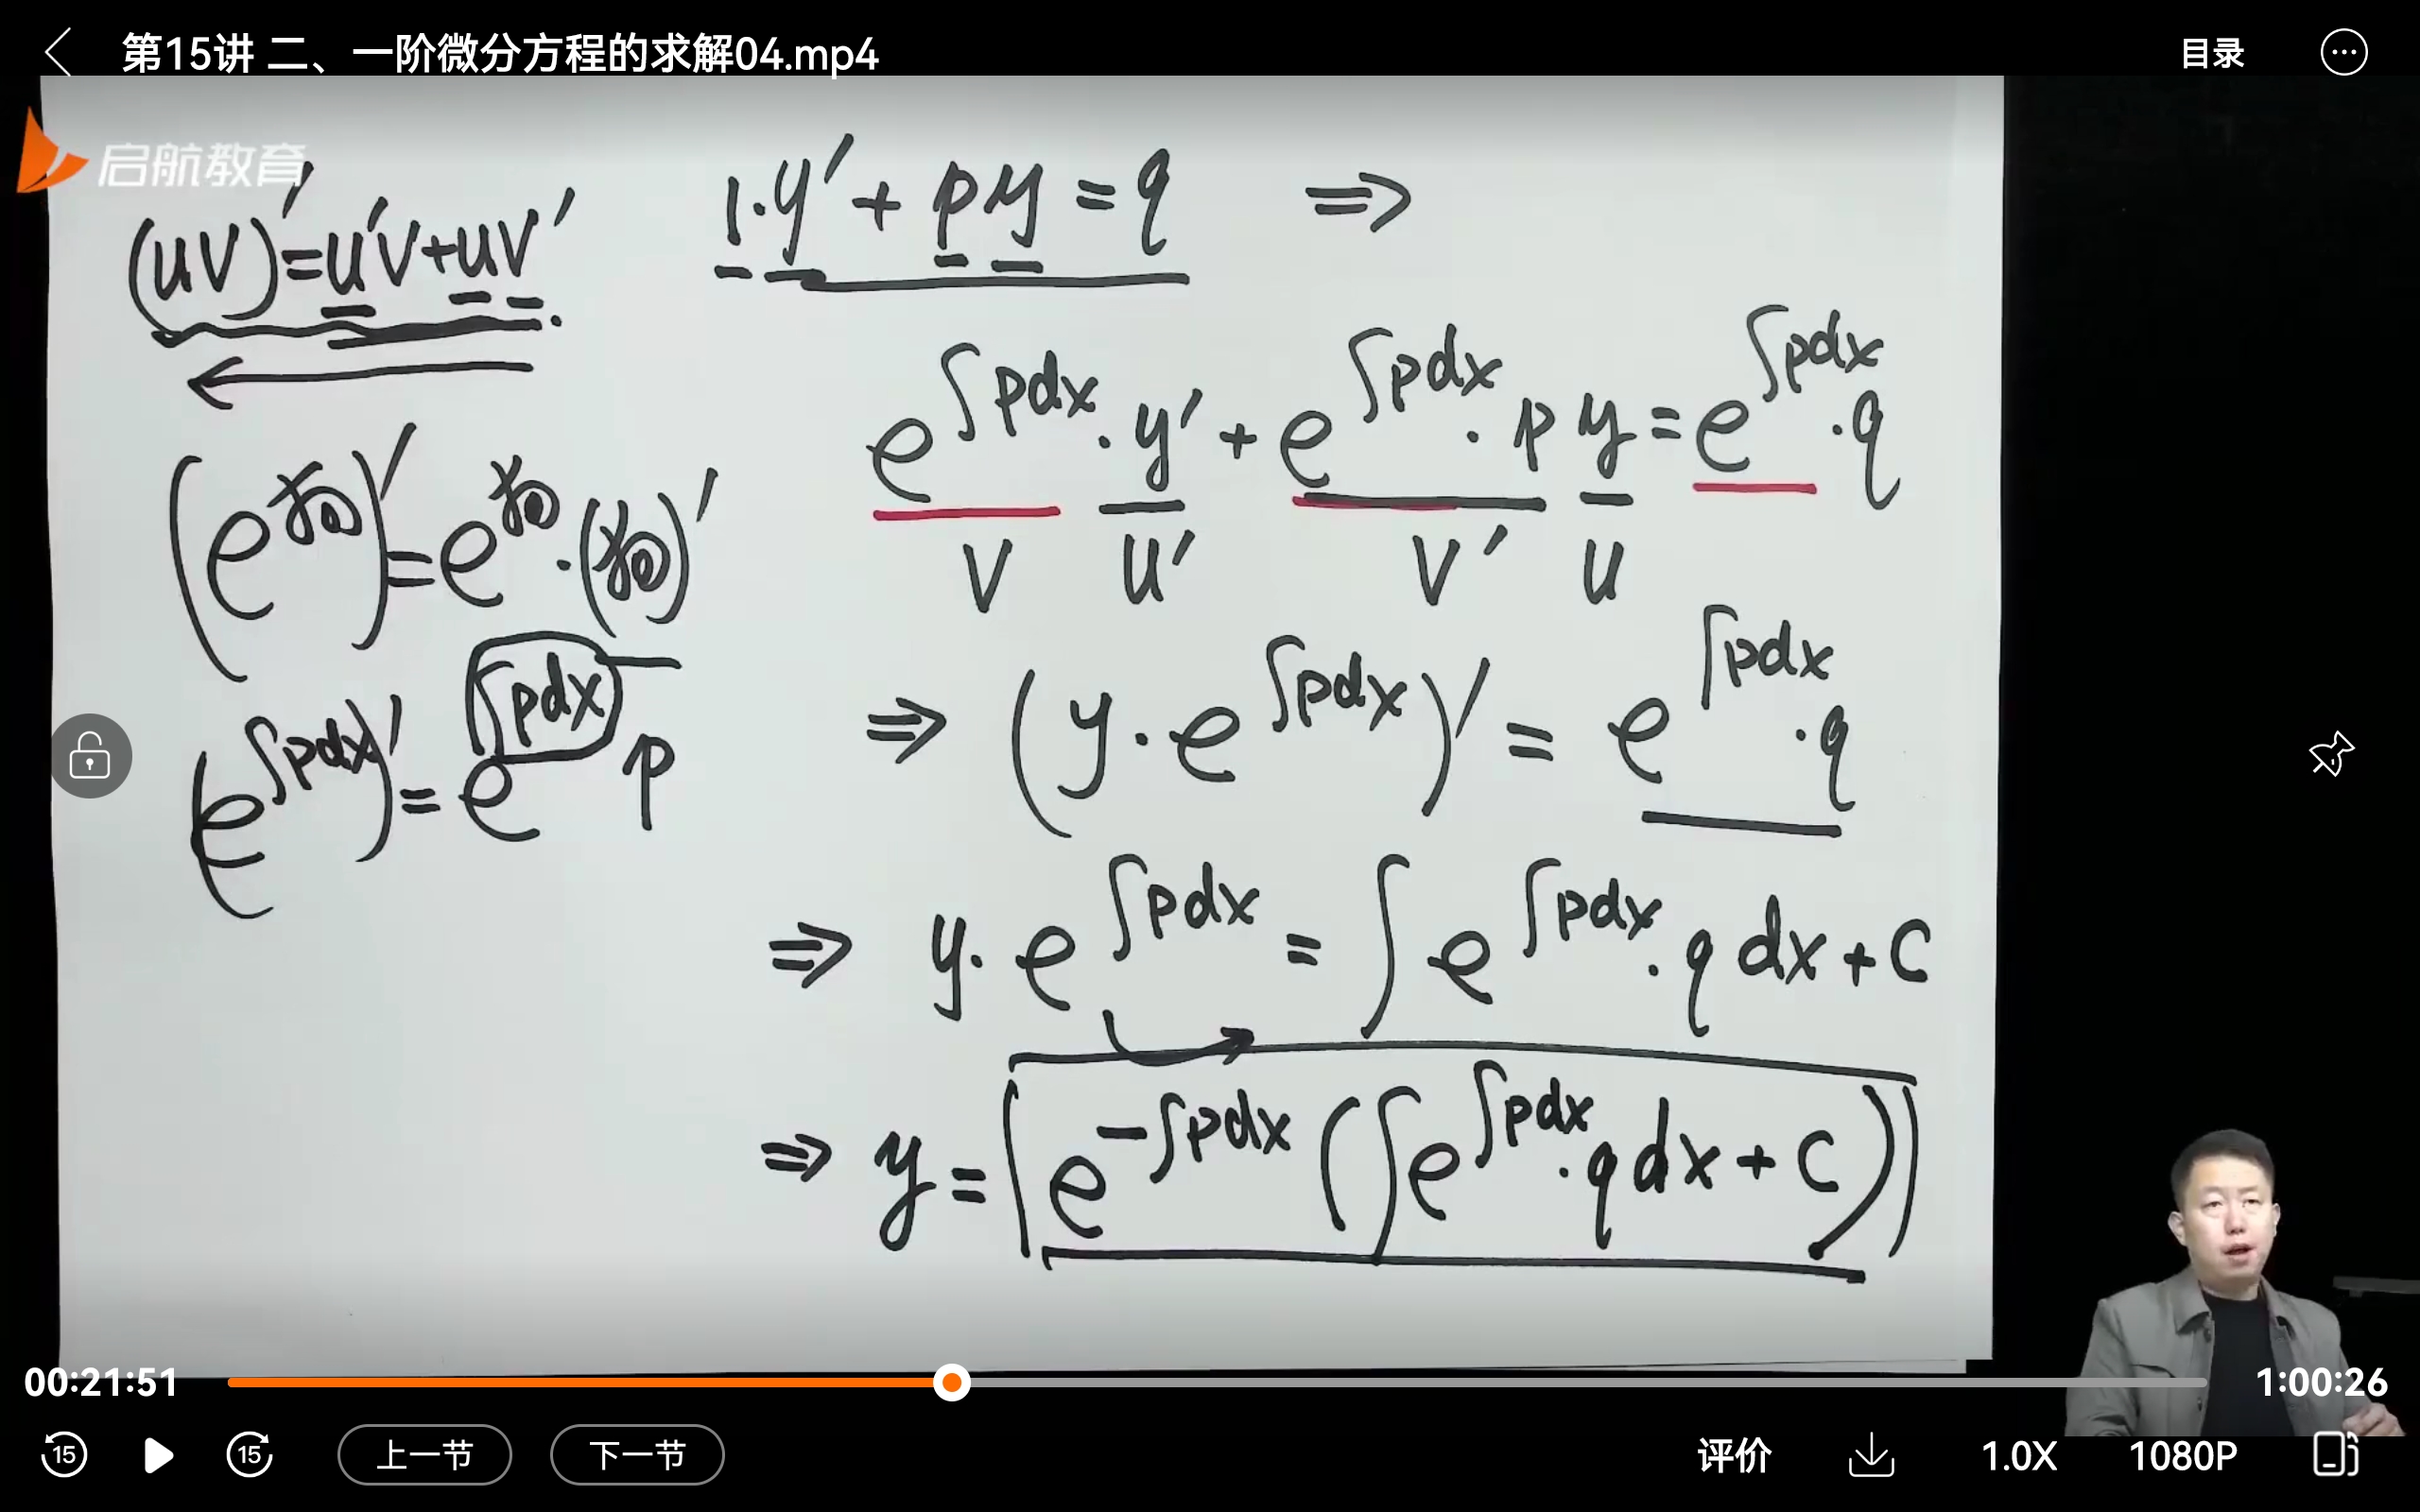 第15讲 二、一阶微分方程的求解04.mp4
目录
启航教育
(uv)'=u'v+uv'.
1·y'+py=q ⇒
e^{∫pdx}·y'+e^{∫pdx}·py=e^{∫pdx}·q
v u' v' u
(e^{狗})'=e^{狗}·(狗)'
(e^{∫pdx})'=e^{∫pdx}p
⇒ (y·e^{∫pdx})'=e^{∫pdx}·q
⇒ y·e^{∫pdx}=∫e^{∫pdx}·qdx+C
⇒ y=e^{-∫pdx}(∫e^{∫pdx}·qdx+C)
00:21:51
1:00:26
15
15
上一节
下一节
评价
1.0X
1080P